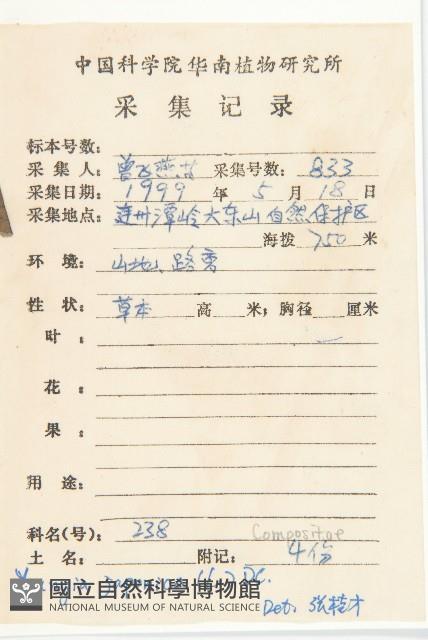 中国科学院华南植物研究所
采集记录
标本号数:
采集人: 曾飞燕 采集号数: 833
采集日期: 1999 年 5 月 18 日
采集地点: 连州潭岭大东山自然保护区
海拨 750 米
环境: 山地、路旁
性状: 草本 高 米; 胸径 厘米
叶:
花:
果:
用途:
科名(号): 238 Compositae
土名: 附记: 4份
(L.) DC.
國立自然科學博物館
NATIONAL MUSEUM OF NATURAL SCIENCE
Det. 张桂才